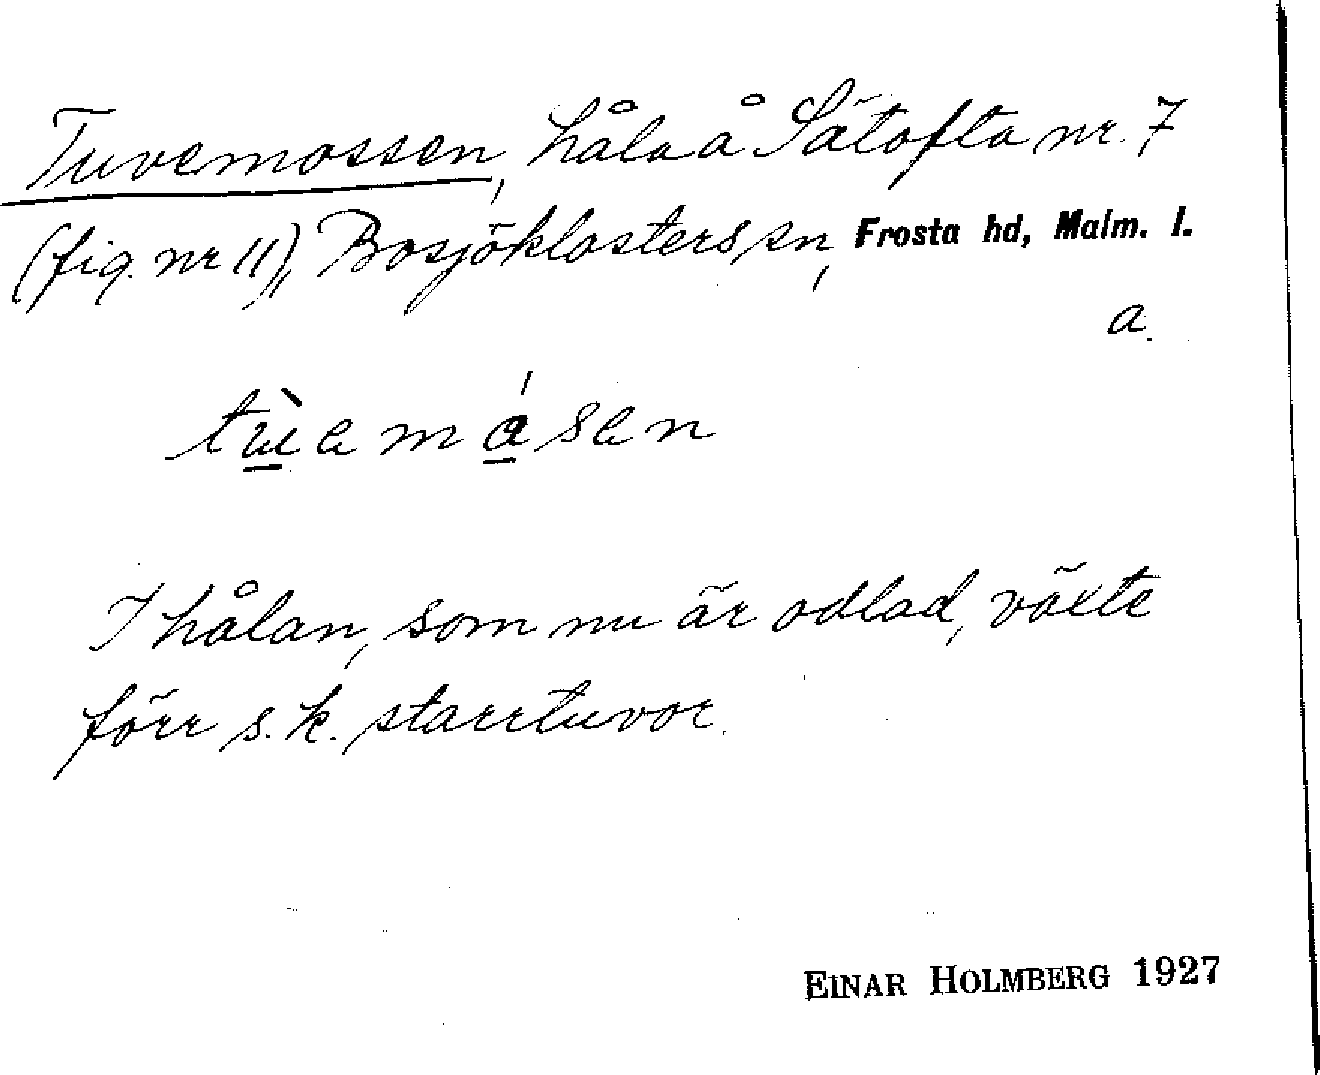 Tuvemossen, håla å Sätofta nr. 7
(fig. nr 11), Bosjöklosters sn, Frosta hd, Malm. l.
a.
tùemásen
I hålan, som nu är odlad, växte
förr s.k. starrtuvor.
EINAR HOLMBERG 1927